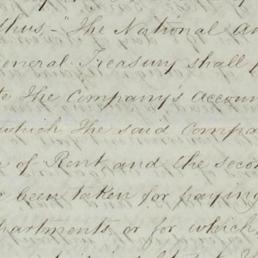 thus - "The National an
General Treasury shall
The Company's Accoun
which the said Compa
of Rent and the secon
been taken for paying
partments or for which